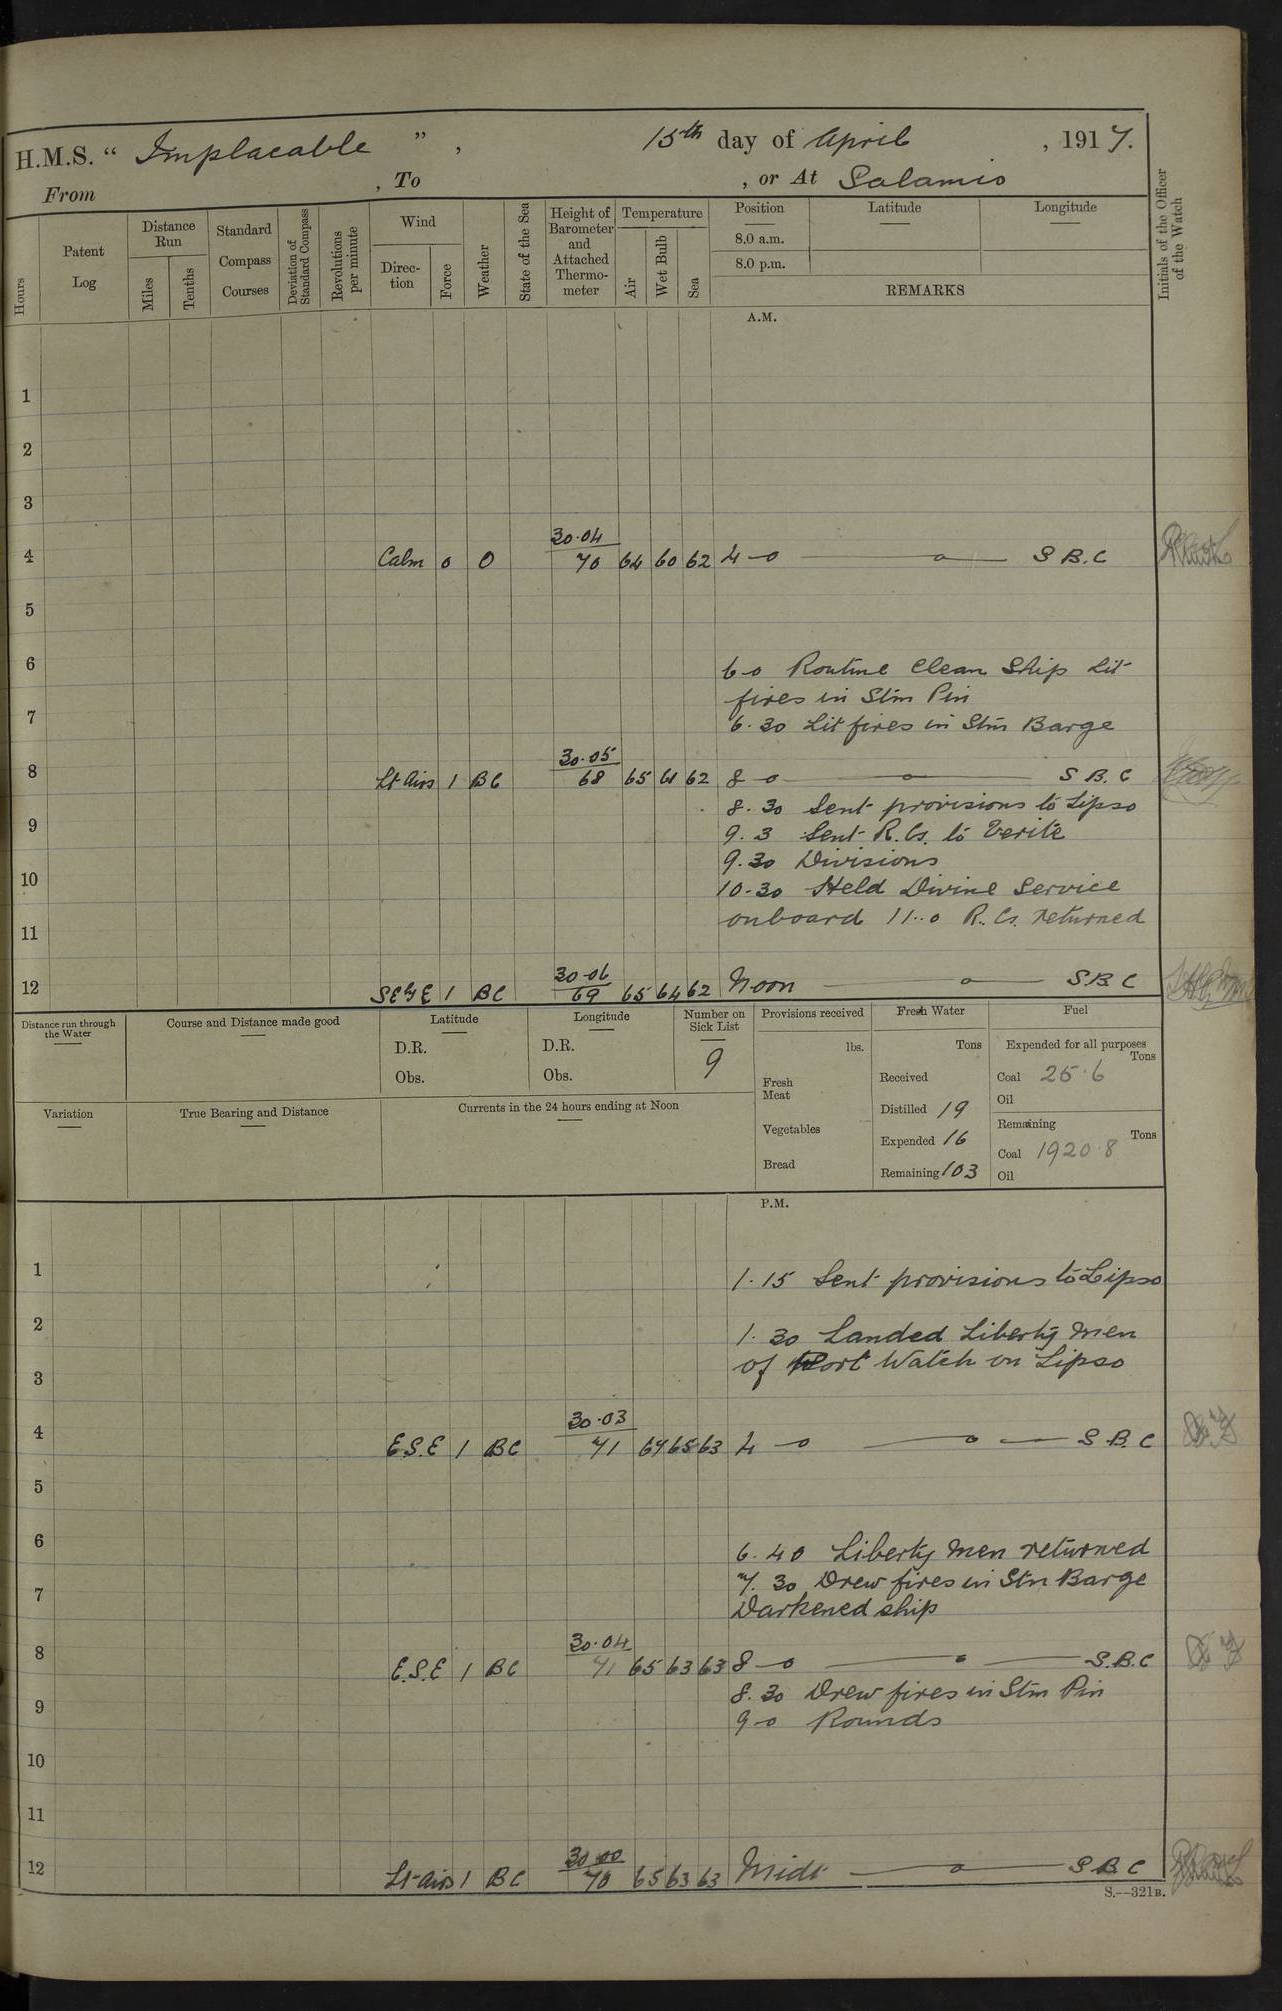 H.M.S. “ Implacable ” , 15th day of April , 1917.
From , To , or At Salamis
Hours
Patent Log
Distance Run
Miles
Tenths
Standard Compass Courses
Deviation of Standard Compass
Revolutions per minute
Wind
Direction
Force
Weather
State of the Sea
Height of Barometer and Attached Thermometer
Temperature
Air
Wet Bulb
Sea
Position
Latitude
Longitude
8.0 a.m.
8.0 p.m.
REMARKS
Initials of the Officer of the Watch
A.M.
1
2
3
30·04
4 Calm 0 O 70 64 60 62 4-0 — o — S B.C
5
6 6-0 Routine Clean Ship Lit
fires in Stm Pin
7 6.30 Lit fires in Stm Barge
30·05
8 Lt Airs 1 BC 68 65 61 62 8-0 — o — S B.C
8.30 Sent provisions to Lipso
9 9.3 Sent R.Cs. to Verite
9.30 Divisions
10 10-30 Held Divine Service
onboard 11-0 R.Cs. returned
11
30·06
12 SE by E 1 BC 69 65 64 62 Noon — o — S.B.C
Distance run through the Water
Course and Distance made good
Latitude
D.R.
Obs.
Longitude
D.R.
Obs.
Number on Sick List
9
Provisions received
lbs.
Fresh Meat
Vegetables
Bread
Fresh Water
Tons
Received
Distilled 19
Expended 16
Remaining 103
Fuel
Expended for all purposes
Tons
Coal 25·6
Oil
Remaining
Tons
Coal 1920·8
Oil
Variation
True Bearing and Distance
Currents in the 24 hours ending at Noon
P.M.
1 1.15 Sent provisions to Lipso
2 1.30 Landed Liberty Men
of Port Watch on Lipso
3
30·03
4 E.S.E 1 BC 71 67 65 63 4-0 — o — S.B.C
5
6 6.40 Liberty Men returned
7.30 Drew fires in Stm Barge
7 Darkened ship
30·04
8 E.S.E 1 BC 71 65 63 63 8-0 — o — S.B.C
8.30 Drew fires in Stm Pin
9 9-0 Rounds
10
11
30·00
12 Lt-Airs 1 BC 70 65 63 63 Midt — o — S.B.C
S.—321B.